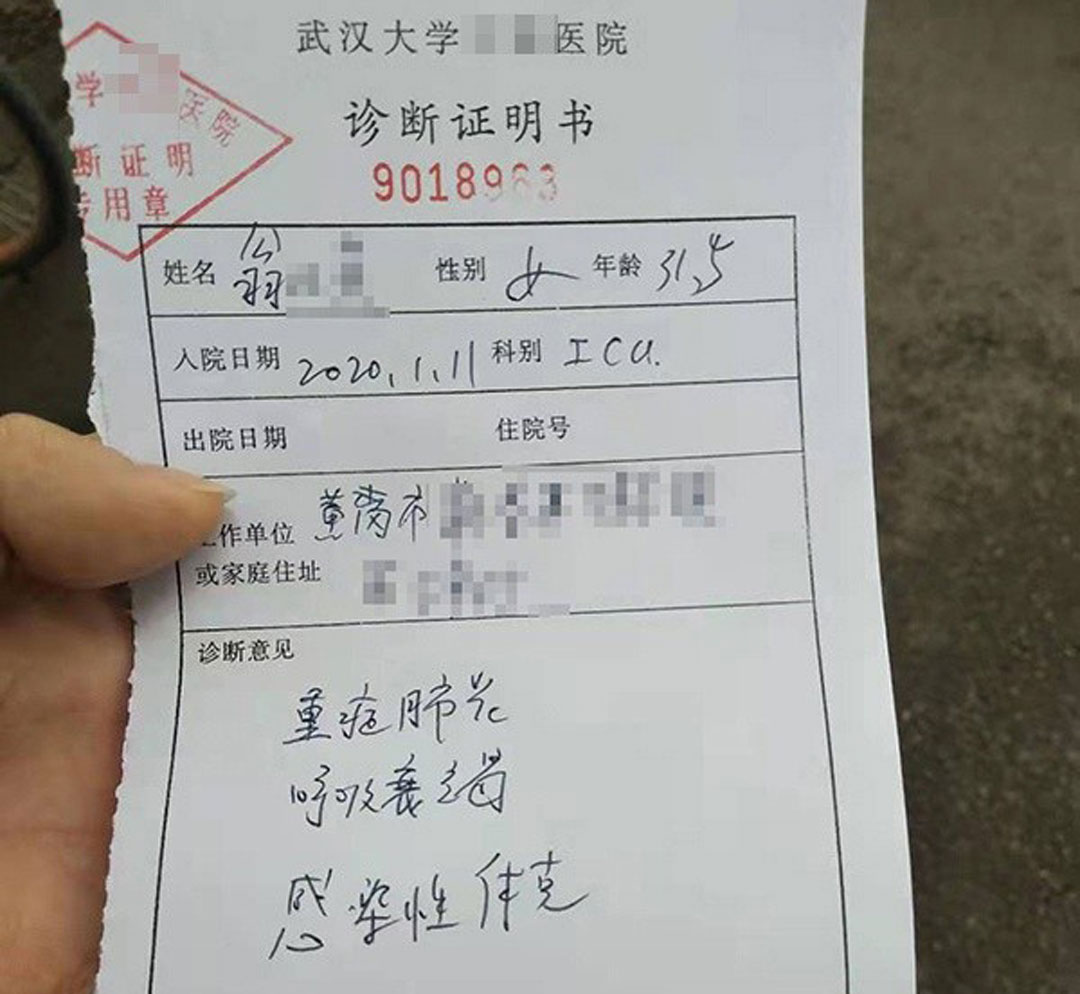 武汉大学 医院
学 医院
断证明
专用章
诊断证明书
9018963
姓名 翁 性别 女 年龄 31岁
入院日期 2020.1.11 科别 ICU.
出院日期 住院号
工作单位 黄冈市
或家庭住址
诊断意见
重症肺炎
呼吸衰竭
感染性休克